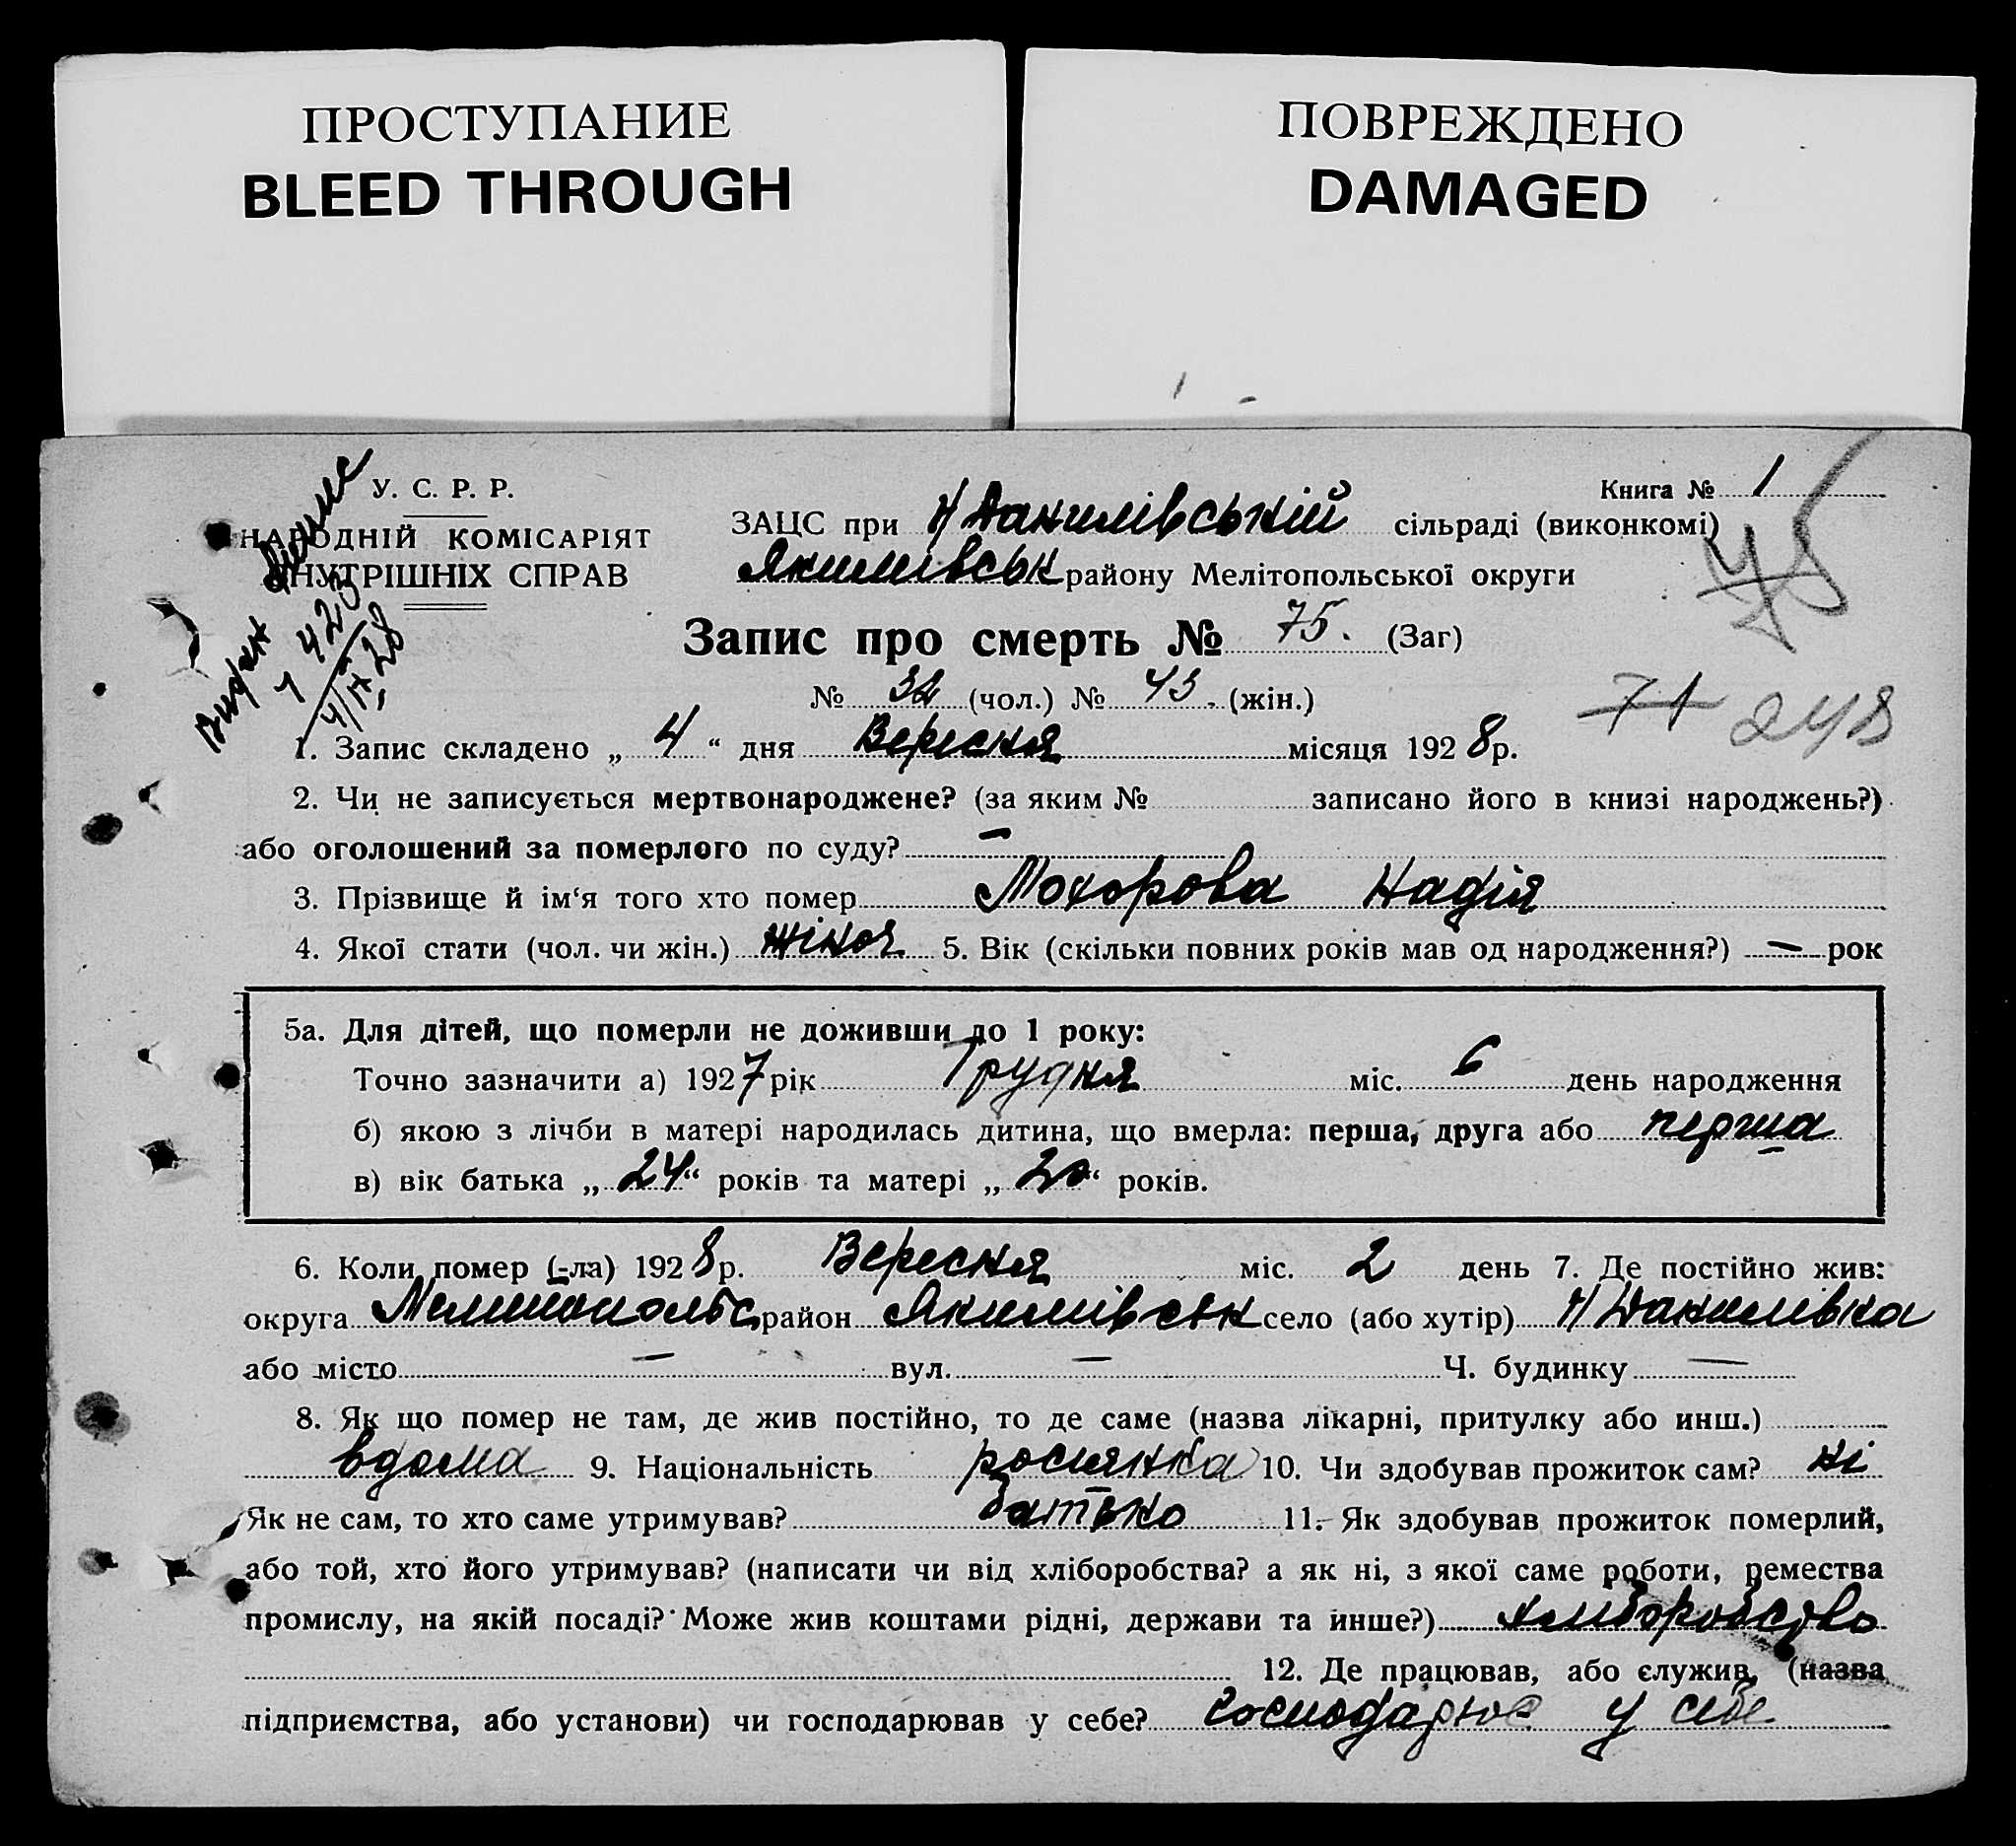 ПРОСТУПАНИЕ
BLEED THROUGH
ПОВРЕЖДЕНО
DAMAGED
У. С. Р. Р.
НАРОДНІЙ КОМІСАРІЯТ
ВНУТРІШНІХ СПРАВ
Книга № 1
ЗАЦС при Н Данилівській сільраді (виконкомі)
Якимівськ району Мелітопольської округи
75
Запис про смерть № 75. (Заг)
№ 32 (чол.) № 43. (жін.)
71 248
1. Запис складено „ 4 “ дня Вересня місяця 1928 р.
2. Чи не записується мертвонароджене? (за яким № записано його в книзі народжень?)
або оголошений за померлого по суду? —
3. Прізвище й ім‘я того хто помер Мохорова Надія
4. Якої стати (чол. чи жін.) жіноч. 5. Вік (скільки повних років мав од народження?) — рок
5а. Для дітей, що померли не доживши до 1 року:
Точно зазначити а) 1927 рік Грудня міс. 6 день народження
б) якою з лічби в матері народилась дитина, що вмерла: перша, друга або перша
в) вік батька „ 24 “ років та матері „ 20 “ років.
6. Коли помер (-ла) 1928 р. Вересня міс. 2 день 7. Де постійно жив:
округа Мелитопольс район Якимівськ село (або хутір) Н Данилівка
або місто — вул. — Ч. будинку —
8. Як що помер не там, де жив постійно, то де саме (назва лікарні, притулку або инш.)
вдома 9. Національність росиянка 10. Чи здобував прожиток сам? ні
Як не сам, то хто саме утримував? батько 11. Як здобував прожиток померлий,
або той, хто його утримував? (написати чи від хліборобства? а як ні, з якої саме роботи, ремества
промислу, на якій посаді? Може жив коштами рідні, держави та инше?) хліборобство
12. Де працював, або служив, (назва
підприємства, або установи) чи господарював у себе? господарює у себе